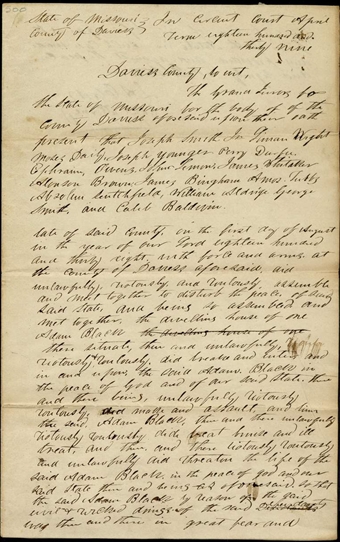 State of Missouri In Circuit Court April
County of Daviess Term eighteen hundred and
thirty nine
Daviess County, to wit,
The Grand Jurors for
the State of Missouri for the body of of the
County Daviess aforesaid upon their oath
present that Joseph Smith Jr Liman Wight
Moses Da y Joseph younger Perry Durfee
Ephraim Owens, John Simons, James Whitaker
Alonson Brown James Bingham Amos Tubbs
Absolum William Aldrige George
Smith, and Calib Baldwin
late of said County, on the first day of August
in the year of our Lord eighteen hundred
and thirty eight, with force and arms, at
the county of Daviess aforesaid, did
unlawfully, riotously and routously, assemble
and met together to disturb the peace of
said State and being so assembled and
met together, the dwelling house of one
Adam Black the dwelling house of one
there situate, then and unlawfully,
riotously & routously, did break and enter and
in and upon the said Adam Black in
the peace of God and of our said State then
and there being, unlawfully riotously
routously, made and assault and him
the said Adam Black, then and there unlawfully
riotously routously did beat bruise and ill
treat, and then and there riotously routously
and unlawfully did threaten the life of the
said Adam Black in the peace of god and our
said State then and being as aforesaid so that
the said Adam Black by reason of the said
evil & wicked doings of the said
was then and there in great fear and